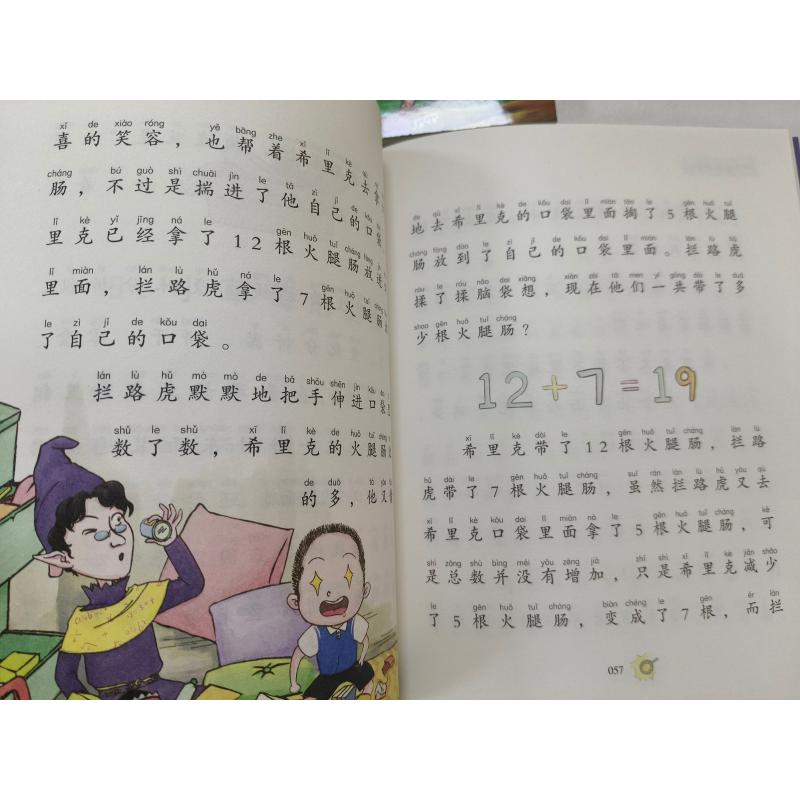 xǐ de xiào róng yě bāng zhe xī lǐ kè qù ná
喜的笑容，也帮着希里克去拿
cháng bú guò shì chuāi jìn le tā zì jǐ de kǒu
肠，不过是揣进了他自己的口
lǐ kè yǐ jīng ná le gēn huǒ tuǐ cháng fàng
里克已经拿了12根火腿肠放进
lǐ miàn lán lù hǔ ná le gēn huǒ tuǐ cháng
里面，拦路虎拿了7根火腿肠
le zì jǐ de kǒu dai
了自己的口袋。
lán lù hǔ mò mò de bǎ shǒu shēn jìn kǒu dai
拦路虎默默地把手伸进口袋里
shǔ le shǔ xī lǐ kè de huǒ tuǐ cháng
数了数，希里克的火腿肠
de duō tā yòu
的多，他又
de qù xī lǐ kè de kǒu dai lǐ miàn tāo le gēn huǒ tuǐ
地去希里克的口袋里面掏了5根火腿
cháng fàng dào le zì jǐ de kǒu dai lǐ miàn lán lù hǔ
肠放到了自己的口袋里面。拦路虎
róu le róu nǎo dai xiǎng xiàn zài tā men yí gòng dài le duō
揉了揉脑袋想，现在他们一共带了多
shao gēn huǒ tuǐ cháng
少根火腿肠？
12+7=19
xī lǐ kè dài le gēn huǒ tuǐ cháng lán lù
希里克带了12根火腿肠，拦路
hǔ dài le gēn huǒ tuǐ cháng suī rán lán lù hǔ yòu qù
虎带了7根火腿肠，虽然拦路虎又去
xī lǐ kè kǒu dai lǐ miàn ná le gēn huǒ tuǐ cháng kě
希里克口袋里面拿了5根火腿肠，可
shì zǒng shù bìng méi yǒu zēng jiā zhǐ shì xī lǐ kè jiǎn shǎo
是总数并没有增加，只是希里克减少
le gēn huǒ tuǐ cháng biàn chéng le gēn ér lán
了5根火腿肠，变成了7根，而拦
057